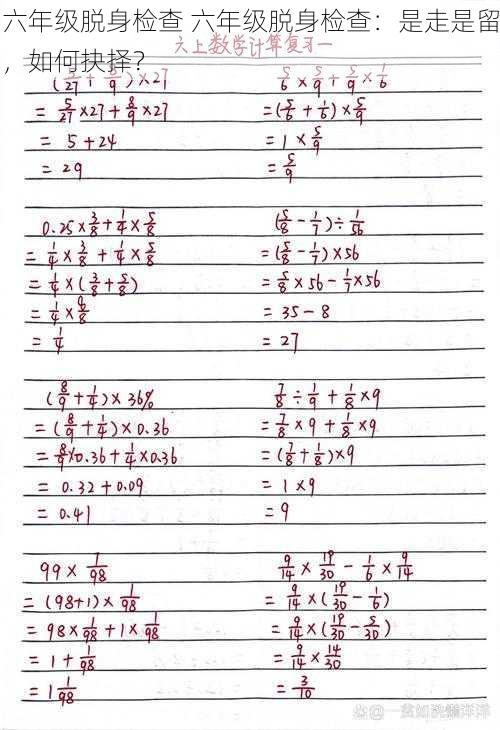 六年级脱身检查 六年级脱身检查：是走是留
，如何抉择？
六上数学计算复习一
(5/27 + 8/9) × 27
= 5/27 × 27 + 8/9 × 27
= 5 + 24
= 29
5/6 × 5/9 + 5/9 × 1/6
= (5/6 + 1/6) × 5/9
= 1 × 5/9
= 5/9
0.25 × 3/8 + 1/4 × 5/8
= 1/4 × 3/8 + 1/4 × 5/8
= 1/4 × (3/8 + 5/8)
= 1/4 × 8/8
= 1/4
(5/8 - 1/7) ÷ 1/56
= (5/8 - 1/7) × 56
= 5/8 × 56 - 1/7 × 56
= 35 - 8
= 27
(8/9 + 1/4) × 36%
= (8/9 + 1/4) × 0.36
= 8/9 × 0.36 + 1/4 × 0.36
= 0.32 + 0.09
= 0.41
7/8 ÷ 1/9 + 1/8 × 9
= 7/8 × 9 + 1/8 × 9
= (7/8 + 1/8) × 9
= 1 × 9
= 9
99 × 1/98
= (98+1) × 1/98
= 98 × 1/98 + 1 × 1/98
= 1 + 1/98
= 1 1/98
9/14 × 19/30 - 1/6 × 9/14
= 9/14 × (19/30 - 1/6)
= 9/14 × (19/30 - 5/30)
= 9/14 × 14/30
= 3/10
@一贫如洗懒洋洋